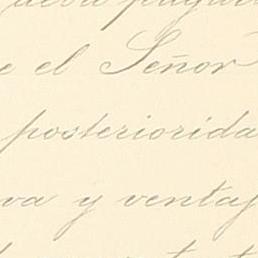 e el Señor
posteriorida
va y ventaj